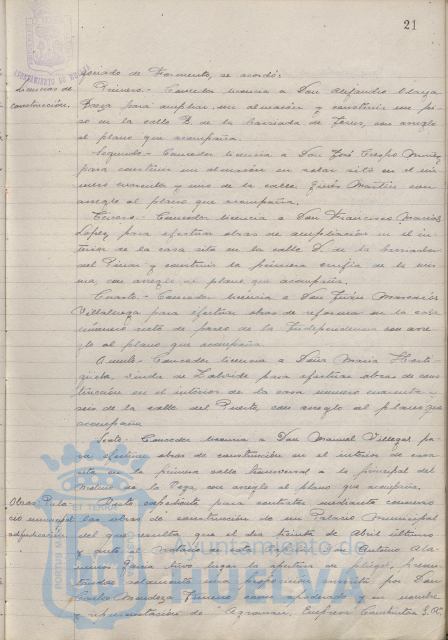 21
AYUNTAMIENTO DE HUELVA
Licencias de
construcción.
de Fomento, se acordó:
Primero.- Conceder licencia a Don Alejandro
para ampliar un almacén y construir un
en la calle B. de la barriada de con arreglo
al plano que acompaña.
Segundo.- Conceder licencia a Don José Crespo
para construir un almacén en solar sito en el nú-
mero cuarenta y uno de la calle Ginés Martín con
arreglo al plano que acompaña.
Tercero.- Conceder licencia a Don Francisco Macías
López para efectuar obras de ampliación en el in-
terior de la casa sita en la calle D. de la barriada
del Pinar y construir la primera crujía de la mis-
ma con arreglo al plano que acompaña.
Cuarto.- Conceder licencia a Don
para efectuar obras de reforma en la casa
número siete de paseo de la Independencia con arre-
glo al plano que acompaña.
Quinto.- Conceder licencia a Doña María
viuda de para efectuar obras de cons-
trucción en el interior de la casa número cuarenta y
seis de la calle del Puerto, con arreglo al plano que
acompaña.
Sexto.- Conceder licencia a Don Manuel Villegas pa-
ra efectuar obras de construcción en el interior de casa
sita en la primera calle transversal a la principal del
Molino de la Vega con arreglo al plano que acompaña.
Obras Pala-
cio municipal
adjudicación.
Visto expediente para contratar mediante concurso
las obras de construcción de un Palacio Municipal
del que resulta que el día treinta de Abril último
y ante el Notario de esta capital Don Antonio
García tuvo lugar la apertura de pliegos, presen-
tándose solamente una proposición suscrita por Don
Carlos Mendoza Gimeno como apoderado y en nombre
y representación de "Agroman, Empresa Constructora S.A."
Ayuntamiento de
HUELVA